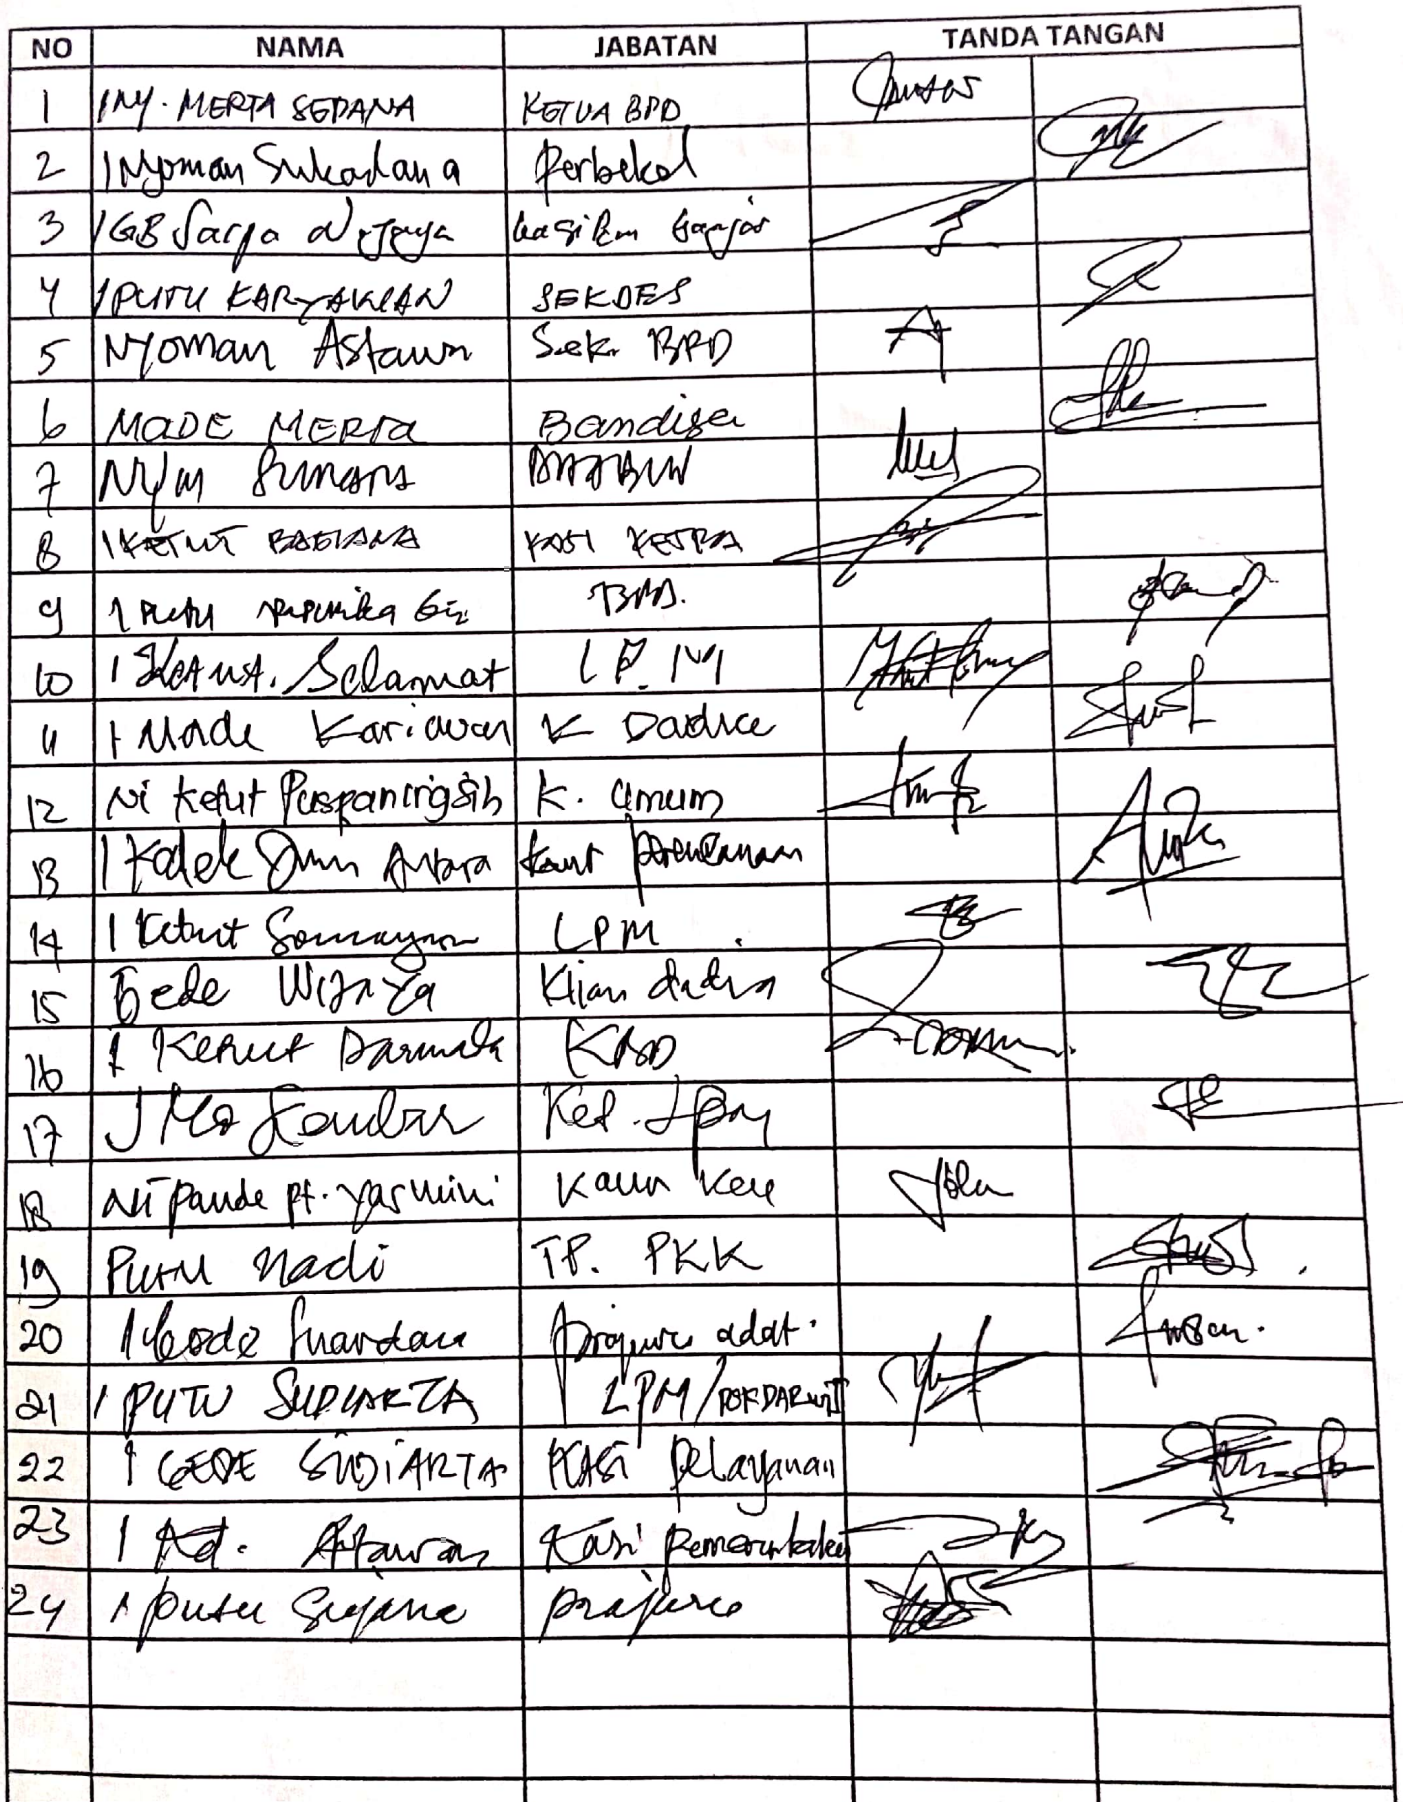 NO NAMA JABATAN TANDA TANGAN
1 I NY. MERTA SEDANA KETUA BPD
2 I Nyoman Sukadana Perbekel
3 IGB Sarja Wijaya banjar
4 I PUTU KARYAWAN SEKDES
5 Nyoman Astawa Sek. BPD
6 MADE MERTA Bandisa
7 Nym
8 I KETUT BAGIANA KASI KESRA
9 I PUTU BPD.
10 I Ketut. Selamat LPM
11 I Made Kariawan K Dadia
12 Ni Ketut Puspaningsih K. Umum
13 I Kadek Antara Kaur perencanaan
14 I Ketut LPM
15 Gede Wijaya Klian dadia
16 I Ketut Darmada
17 Ket. LPM
18 Ni Pande Pt. Yasmini Kaur Keu
19 Putu Nadi TP. PKK
20 I Gede Suardana Prajuru adat.
21 I PUTU SUDIARTA LPM/POKDARWIS
22 I GEDE SUDIARTA KASI Pelayanan
23 I Kd. Artawan Kasi Pemerintahan
24 I Putu Sujana Prajuru